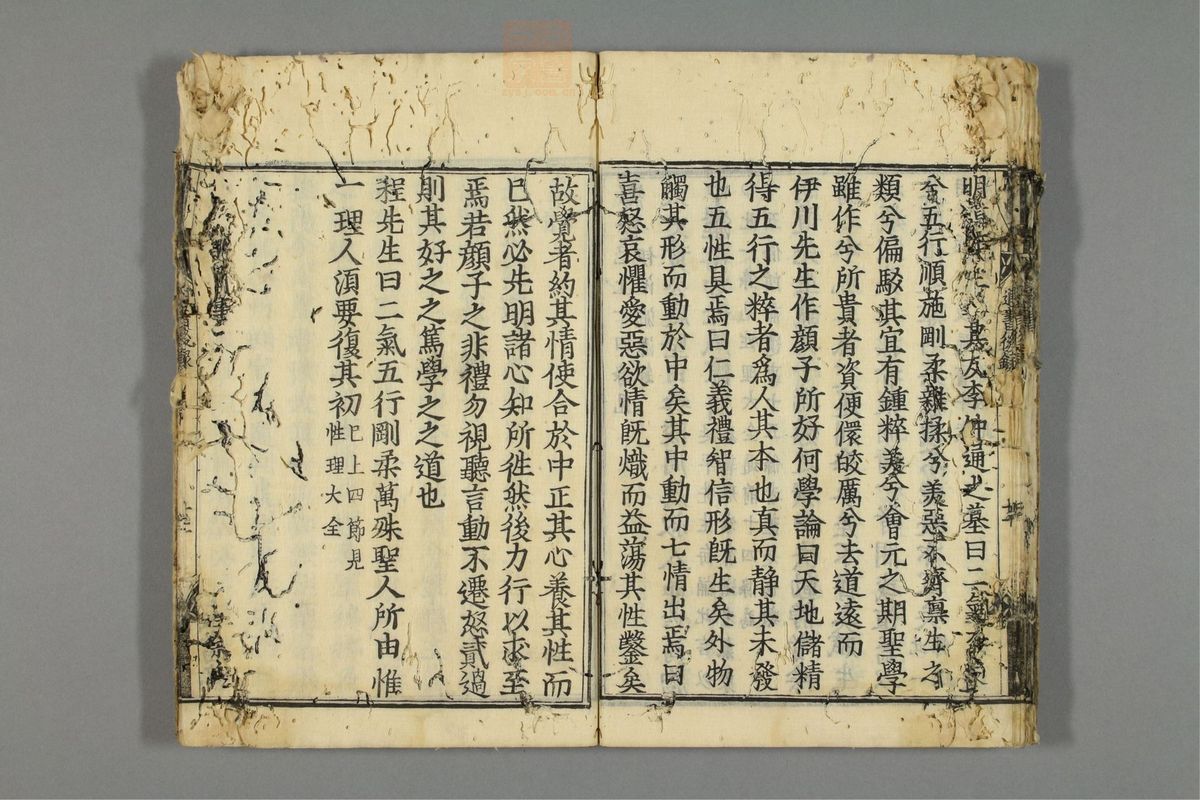 明道先生 其友李仲通之墓曰二氣交運
兮五行順施剛柔雜揉兮美惡不齊稟生之
類兮偏駁其宜有鍾粹美兮會元之期聖學
雖作兮所貴者資便儇皎厲兮去道遠而
伊川先生作顏子所好何學論曰天地儲精
得五行之粹者爲人其本也真而靜其未發
也五性具焉曰仁義禮智信形旣生矣外物
觸其形而動於中矣其中動而七情出焉曰
喜怒哀懼愛惡欲情旣熾而益蕩其性鑿矣
故覺者約其情使合於中正其心養其性而
已然必先明諸心知所徃然後力行以求至
焉若顏子之非禮勿視聽言動不遷怒貳過
則其好之之篤學之之道也
程先生曰二氣五行剛柔萬殊聖人所由惟
一理人湏要復其初
已上四節見
性理大全